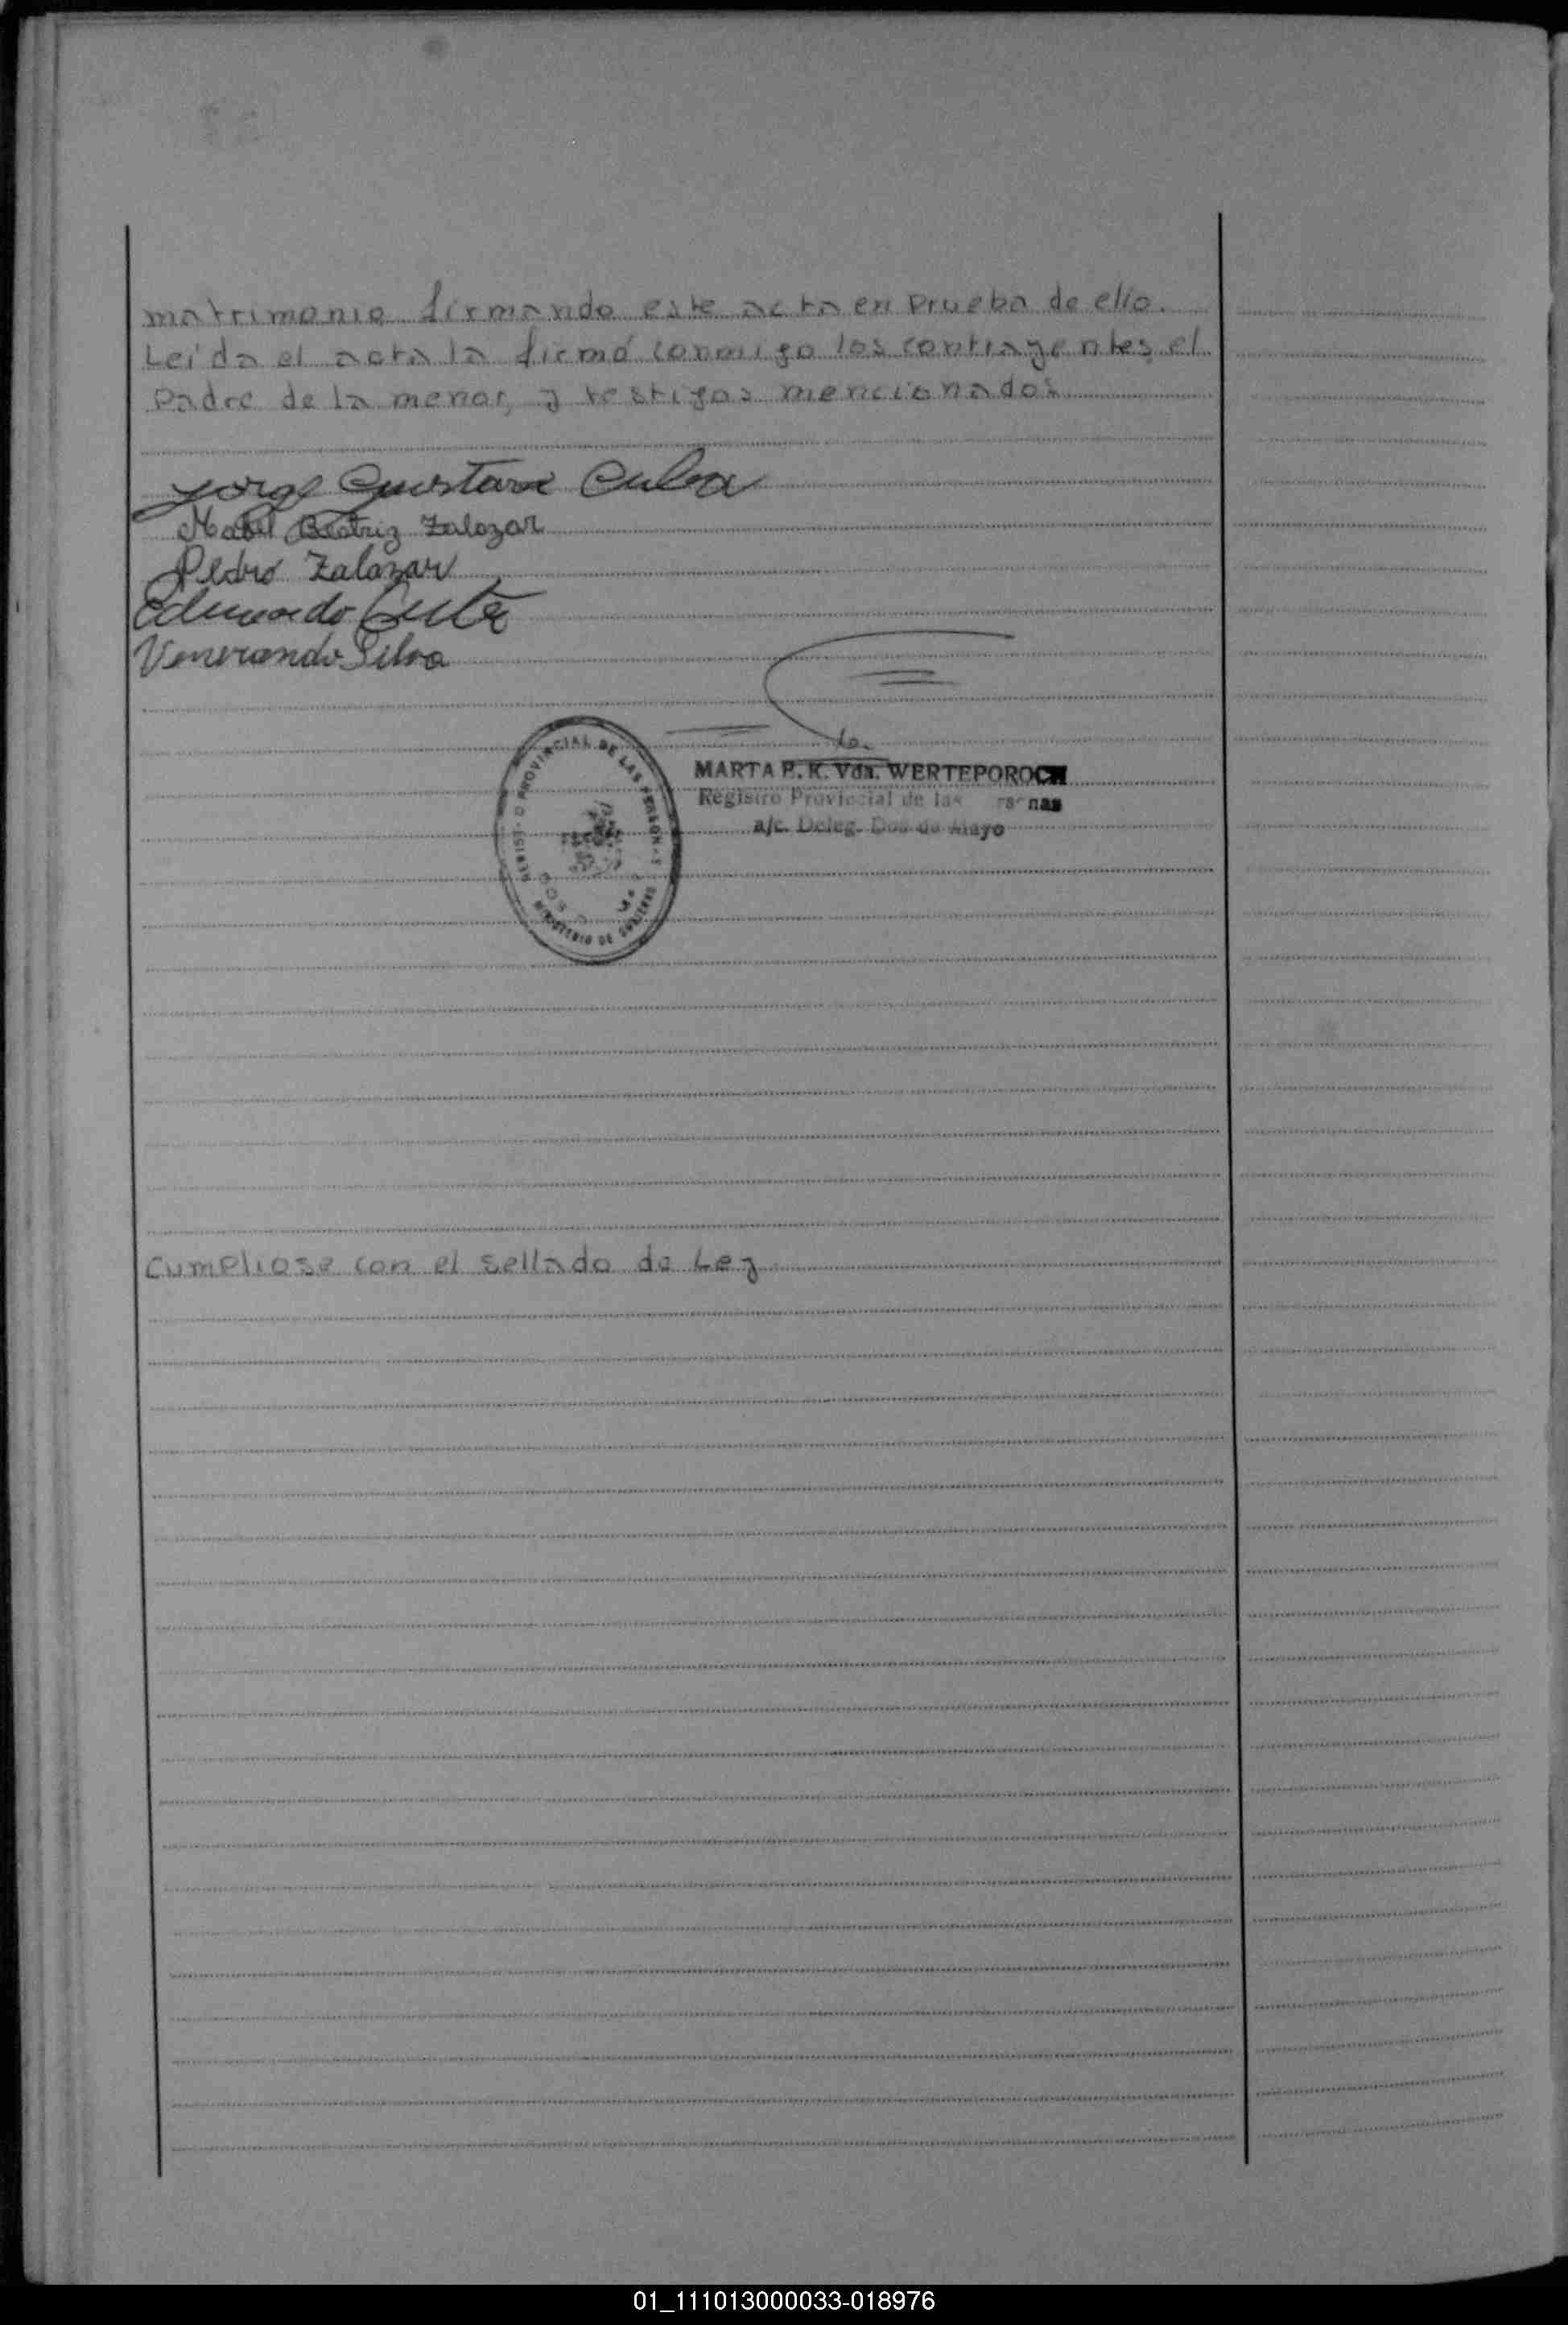 matrimonio firmando este acta en prueba de ello.
Leida el acta la firmó conmigo los contrayentes, el
Padre de la menor, y testigos mencionados
Jorge Gustavo
Mabel Beatriz Zalazar
Pedro Zalazar
Eduardo
Venerando Silva
MARTA P. K. Vda. WERTEPOROCH
Registro Provincial de las rsonas
a/c. Deleg. Dos de Mayo
REGISTRO PROVINCIAL DE LAS PERSONAS
MINISTERIO DE GOBIERNO
Cumpliose con el sellado de Ley
01_111013000033-018976